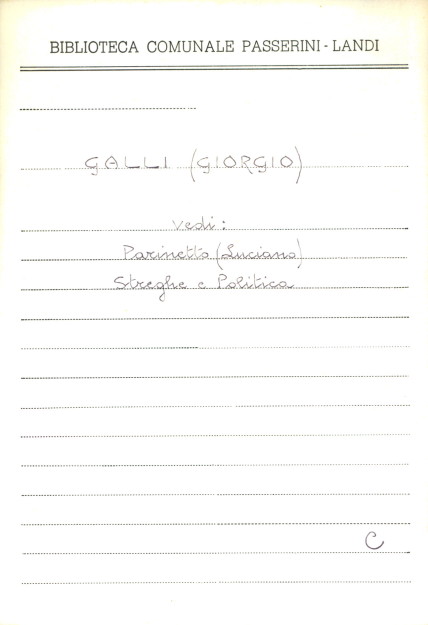 BIBLIOTECA COMUNALE PASSERINI - LANDI
GALLI (GIORGIO)
vedi:
Parinetto (Luciano)
Streghe e Politica
C